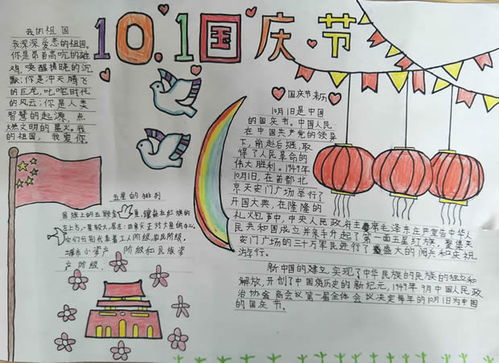 10.1国庆节
我的祖国
我深深爱恋的祖国。
你是昂首高吭的雄
鸡，唤醒拂晓的沉
默；你是冲天腾飞
的巨龙，叱咤时代
的风云；你是人类
智慧的起源，点
燃文明的星火。我
的祖国，我爱你。
五星的排列
国庆节来历
10月1日是中国
的国庆节。中国人民
在中国共产党的领导
下，前赴后继，取
得了人民革命的
伟大胜利。1949年
10月1日，在首都北
京天安门广场举行了
开国大典，在隆隆的
礼炮声中，中央人民政府主席毛泽东庄严宣告中华人
民共和国成立并亲手升起了第一面五星红旗。聚集天
安门广场的三十万军民进行了盛大的阅兵和庆祝
游行。
新中国的建立，实现了中华民族的民族的独立和
解放，开创了中国历史的新纪元，1949年9月中国人民政
治协会商会议第一届全体会议决定每年的10月1日为中国
的国庆节。